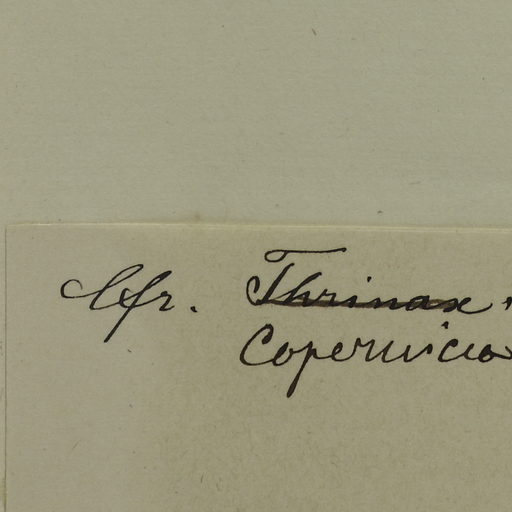 Cfr. Thrinax
Copernicia